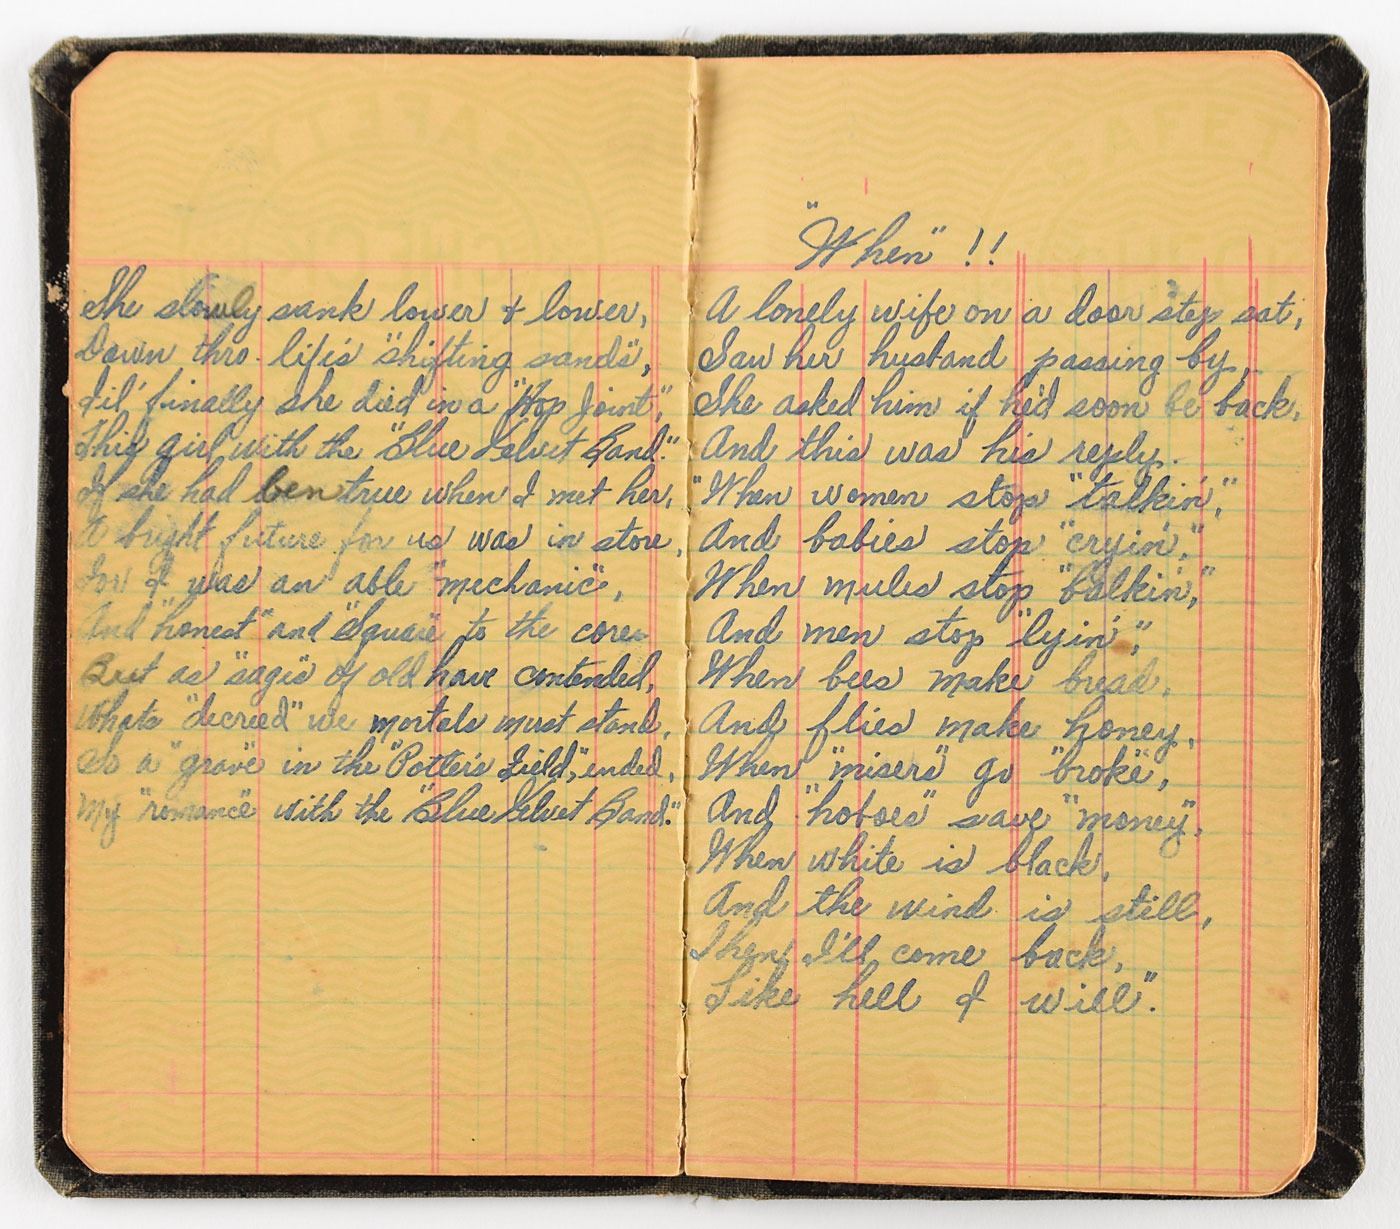 She slowly sank lower & lower,
Down thro. life's "shifting sands",
Til' finally she died in a "Hop Joint",
This girl with the "Blue Velvet Band."
If she had ben true when I met her,
A bright future for us was in store,
For I was an able "mechanic",
And "honest" and "square" to the core
But as "sages" of old have contended,
Whats "decreed" we mortals must stand,
So a "grave" in the "Potter's Field," ended,
My "romance" with the "Blue Velvet Band."
"When" !!
A lonely wife on a door step sat,
Saw her husband passing by,
She asked him if he'd soon be back,
And this was his reply.
"When women stop "talkin',"
And babies stop "cryin',"
When mules stop "balkin',"
And men stop "lyin',"
When bees make bread,
And flies make honey,
When "misers" go "broke",
And "hoboes" save "money",
When white is black,
And the wind is still,
Then I'll come back,
Like hell I will".
SAFETY
SAFET